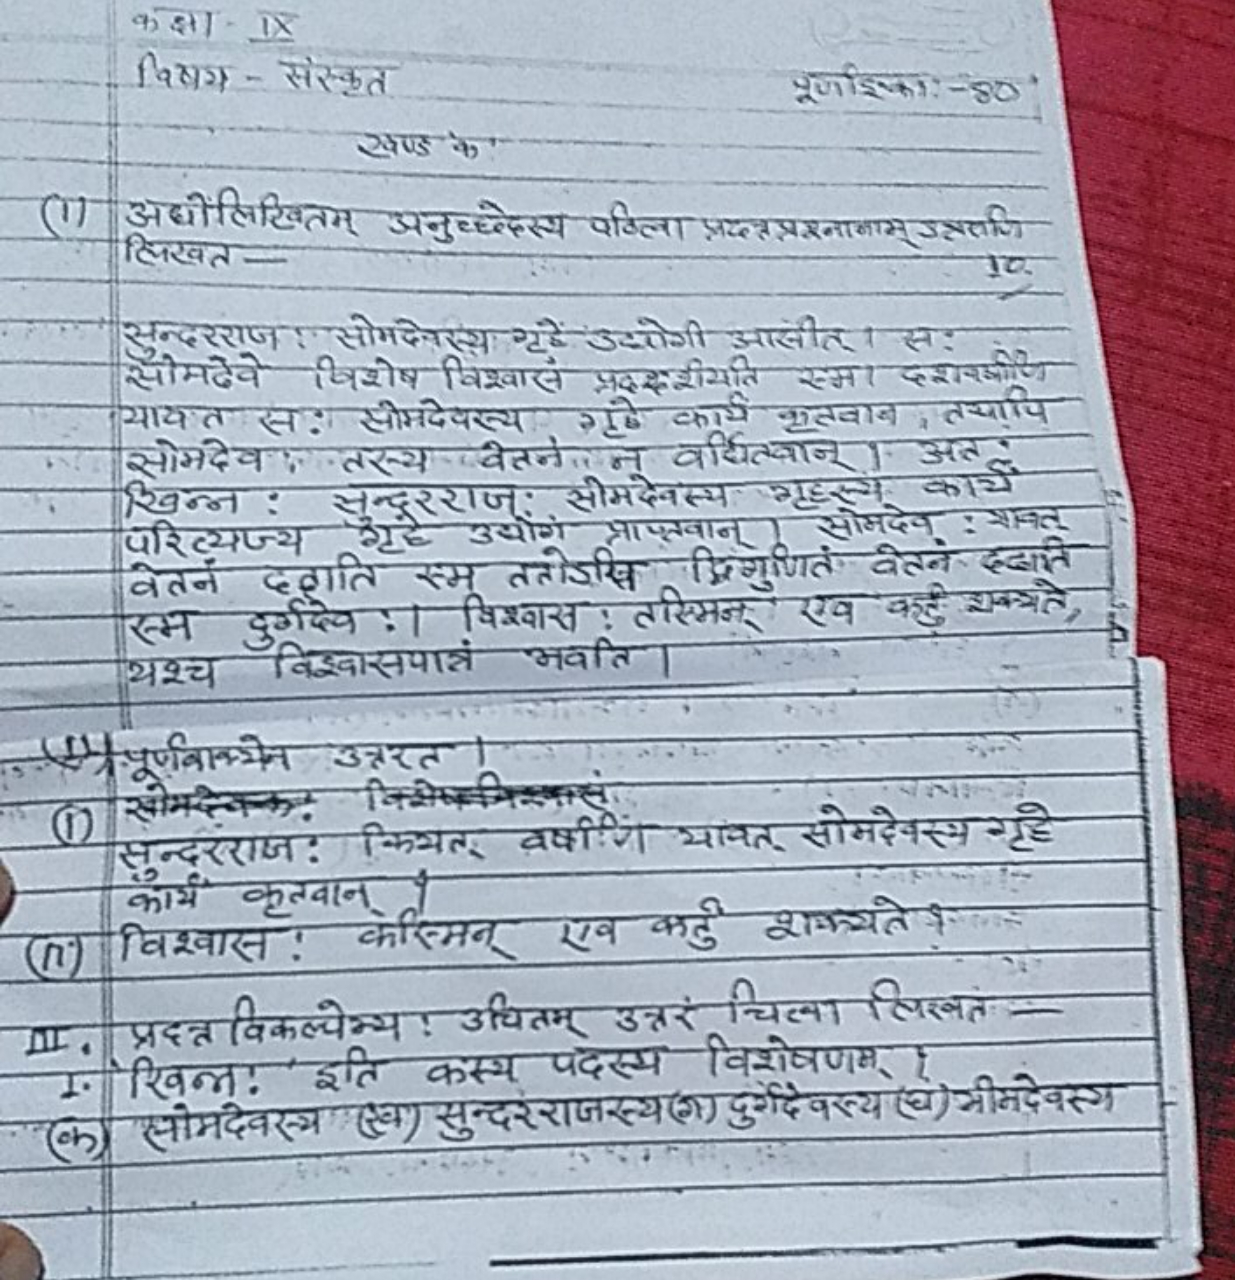 कक्षा - IX
विषय - संस्कृत
पूर्णाङ्काः - 80
खण्ड 'क'
(1) अधोलिखितम् अनुच्छेदस्य पठित्वा प्रदत्त प्रश्नानाम् उत्तराणि
लिखत —
10
सुन्दरराजः सोमदेवस्य गृहे उद्योगी आसीत्। सः
सोमदेवे विशेष विश्वासं स्म। दशवर्षाणि
यावत सः सोमदेवस्य गृहे कार्यं कृतवान, तथापि
सोमदेवः तस्य वेतनं न वर्धितवान्। अतः
खिन्नः सुन्दरराजः सोमदेवस्य गृहस्य कार्यं
परित्यज्य गृहे उद्योगं प्राप्तवान्। सोमदेवः यावत्
वेतनं ददाति स्म ततोऽपि वेतनं ददाति
स्म दुर्गदेवः। विश्वासः तस्मिन् एव कर्तुं शक्यते,
यश्च विश्वासपात्रं भवति।
पूर्णवाक्येन उत्तरत।
(i) सुन्दरराजः कियत् वर्षाणि यावत् सोमदेवस्य गृहे
कार्यं कृतवान् ?
(ii) विश्वासः कस्मिन् एव कर्तुं शक्यते ?
III. प्रदत्त विकल्पेभ्यः उचितम् उत्तरं चित्वा लिखत —
I. खिन्नः इति कस्य पदस्य विशेषणम् ?
(क) सोमदेवस्य (ख) सुन्दरराजस्य (ग) दुर्गदेवस्य (घ) भीमदेवस्य